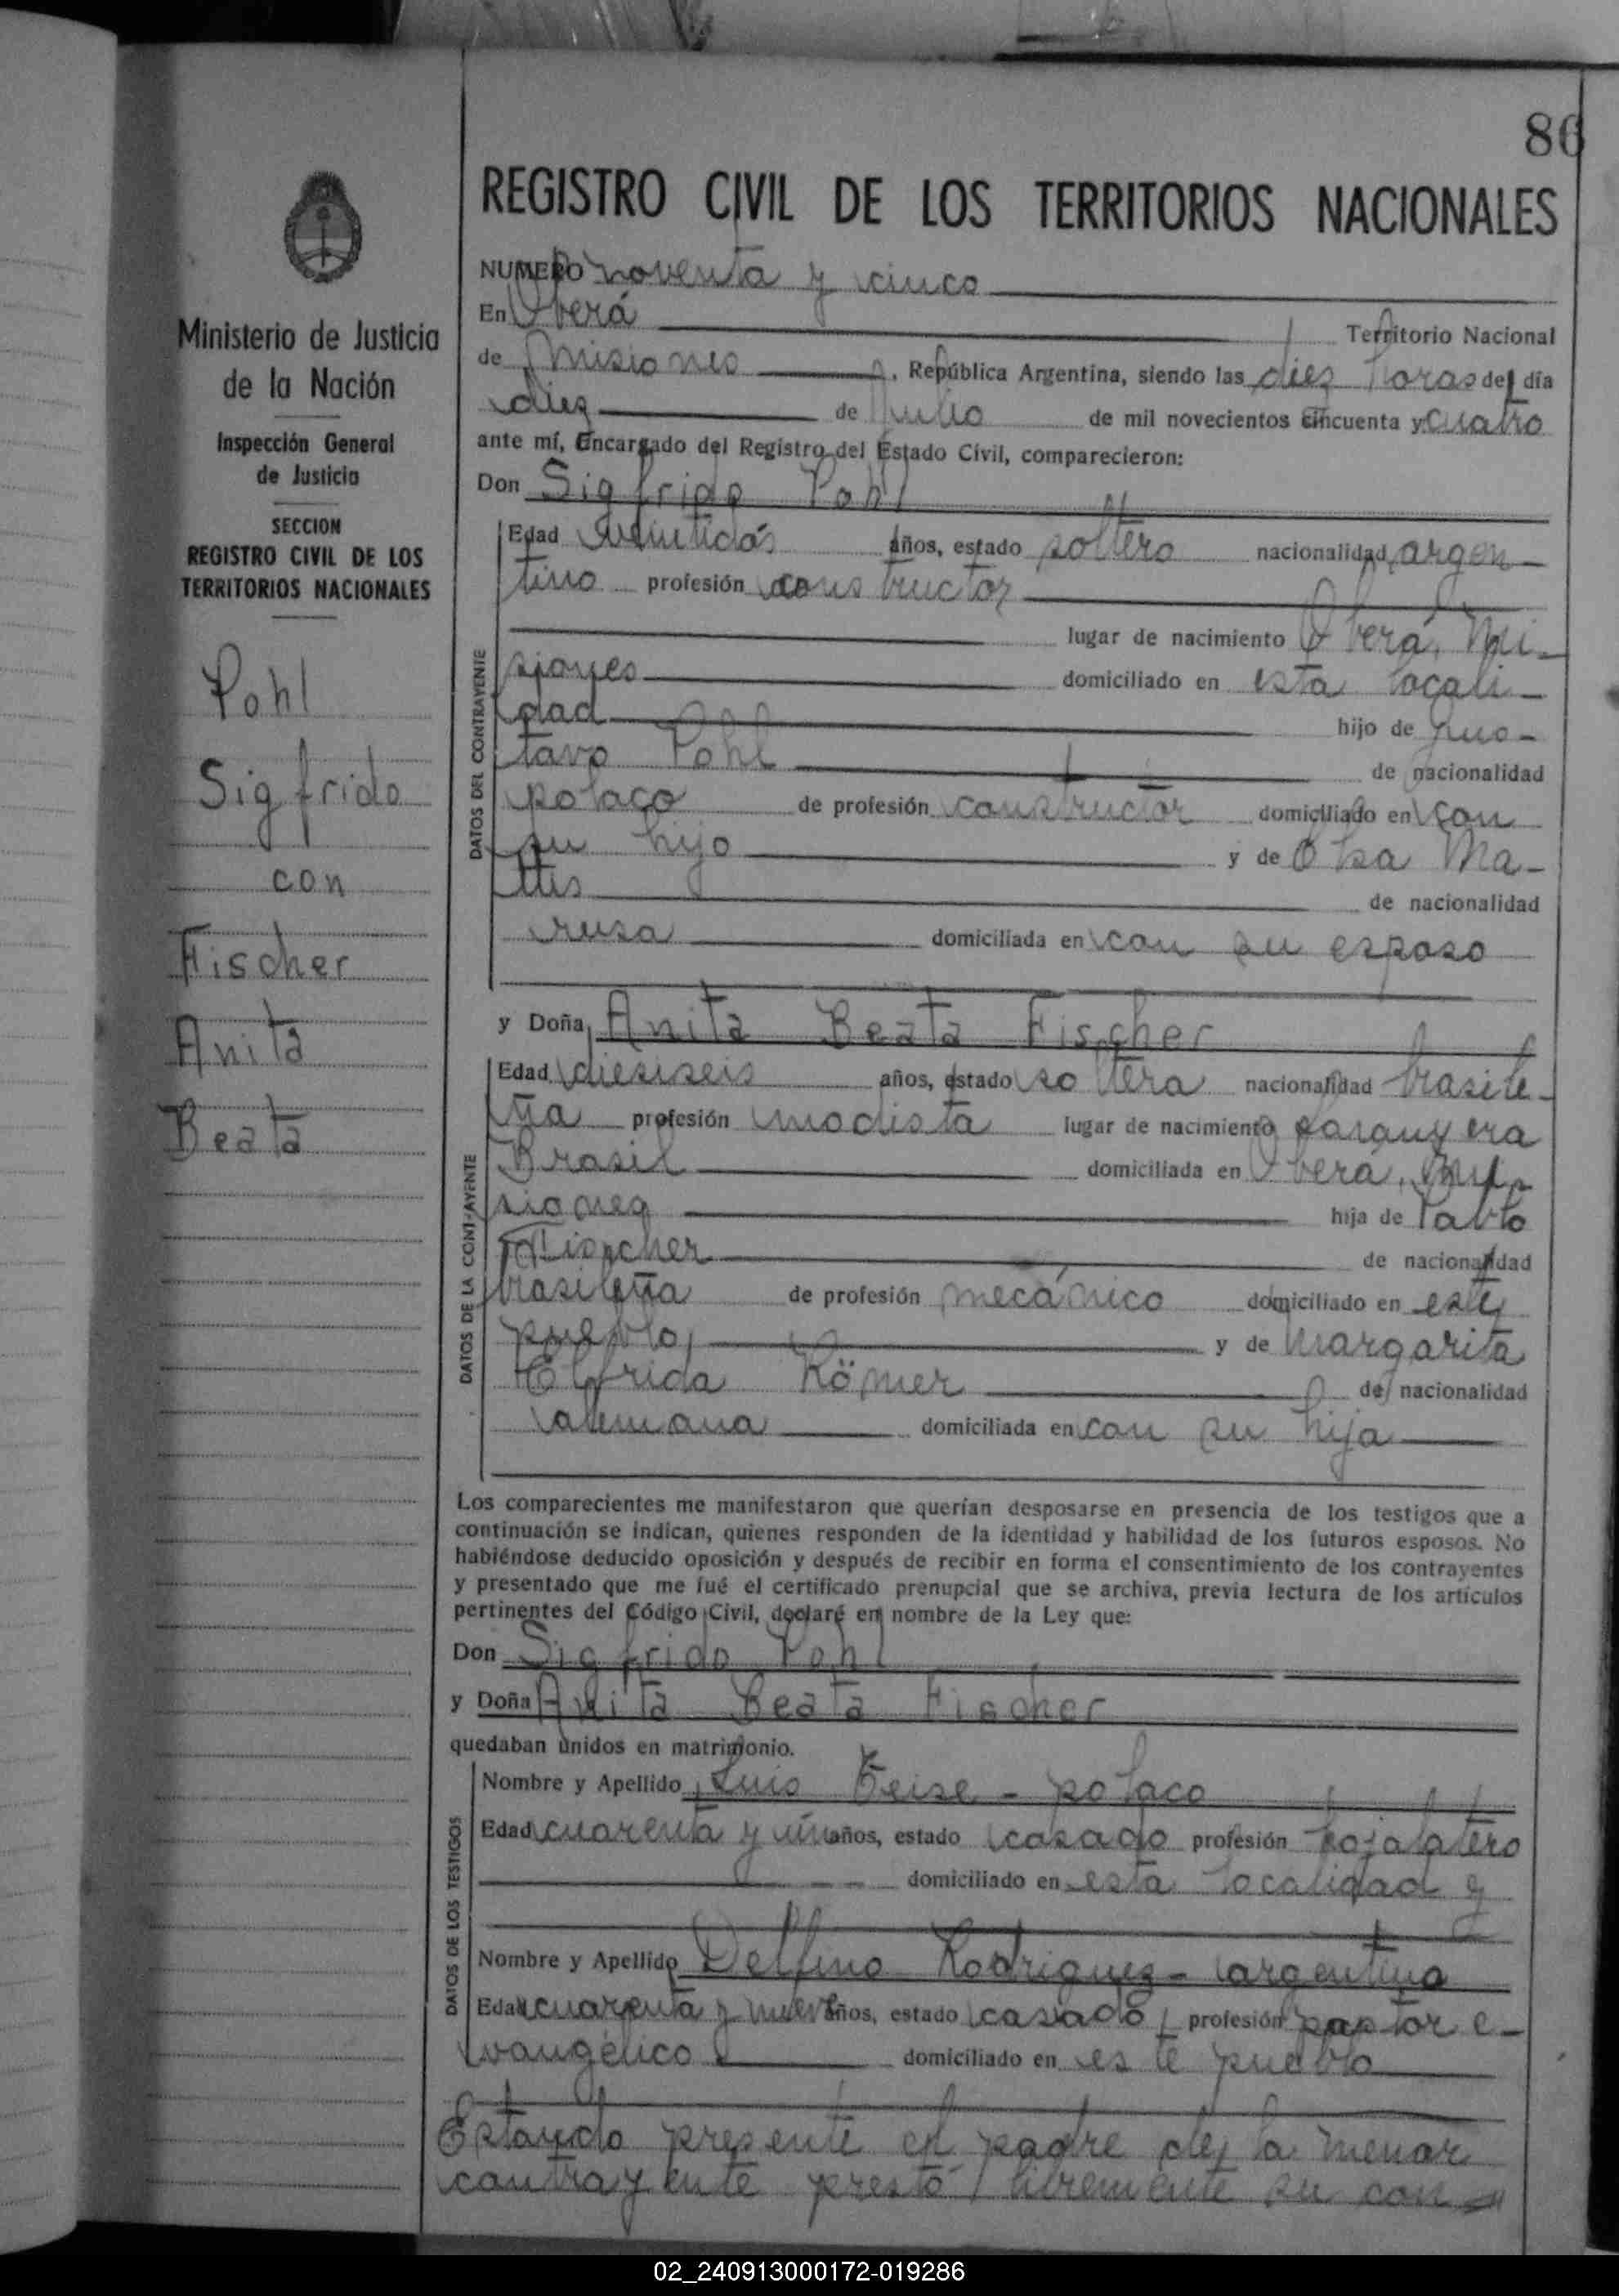 86
REGISTRO CIVIL DE LOS TERRITORIOS NACIONALES
Ministerio de Justicia
de la Nación
Inspección General
de Justicia
SECCION
REGISTRO CIVIL DE LOS
TERRITORIOS NACIONALES
Pohl
Sigfrido
con
Fischer
Anita
Beata
NUMERO noventa y cinco
En Oberá Territorio Nacional
de Misiones, República Argentina, siendo las diez horas del día
diez de Julio de mil novecientos cincuenta y cuatro
ante mí, Encargado del Registro del Estado Civil, comparecieron:
Don Sigfrido Pohl
DATOS DEL CONTRAYENTE
Edad veintidós años, estado soltero nacionalidad argen-
tino profesión constructor
lugar de nacimiento Oberá, Mi-
siones domiciliado en esta locali-
dad hijo de Gus-
tavo Pohl de nacionalidad
polaco de profesión constructor domiciliado en con
su hijo y de Olsa Ma-
ttis de nacionalidad
rusa domiciliada en con su esposo
y Doña Anita Beata Fischer
DATOS DE LA CONTRAYENTE
Edad diesiseis años, estado soltera nacionalidad brasile-
ña profesión modista lugar de nacimiento
Brasil domiciliada en Oberá, Mi-
siones hija de Pablo
Fischer de nacionalidad
brasileña de profesión mecánico domiciliado en este
pueblo, y de Margarita
Elfrida Römer de nacionalidad
alemana domiciliada en con su hija
Los comparecientes me manifestaron que querían desposarse en presencia de los testigos que a
continuación se indican, quienes responden de la identidad y habilidad de los futuros esposos. No
habiéndose deducido oposición y después de recibir en forma el consentimiento de los contrayentes
y presentado que me fué el certificado prenupcial que se archiva, previa lectura de los artículos
pertinentes del Código Civil, declaré en nombre de la Ley que:
Don Sigfrido Pohl
y Doña Anita Beata Fischer
quedaban unidos en matrimonio.
DATOS DE LOS TESTIGOS
Nombre y Apellido Luis - polaco
Edad cuarenta y un años, estado casado profesión hojalatero
domiciliado en esta localidad y
Nombre y Apellido Delfino Rodriguez - argentino
Edad cuarenta y nueve años, estado casado, profesión pastor e-
vangélico domiciliado en este pueblo
Estando presente el padre de la menor
contrayente prestó libremente su con-
02_240913000172-019286